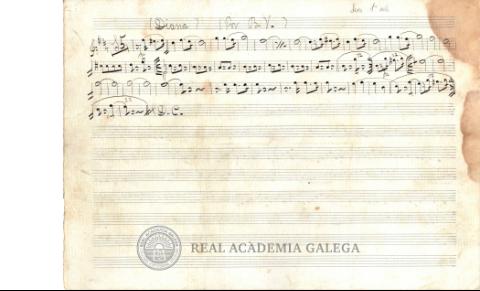 (Diana) (for B. V.)
D. C.
REAL ACADEMIA GALEGA